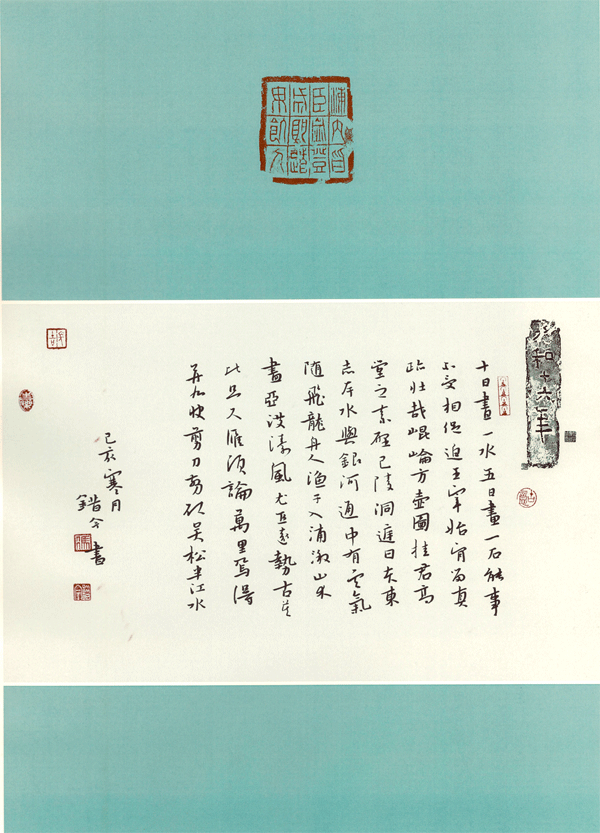 和十六年
十日畫一水五日畫一石能事
不受相促迫王宰始肯留真
跡壯哉崐崘方壺圖挂君高
堂之素壁巴陵洞庭日本東
赤岸水與銀河通中有雲氣
随飛龍舟人漁子入浦漵山木
畫亞洪濤風尤工遠勢古莫
比咫尺應須論萬里焉得
并州快剪刀剪取吴松半江水
己亥寒月
書